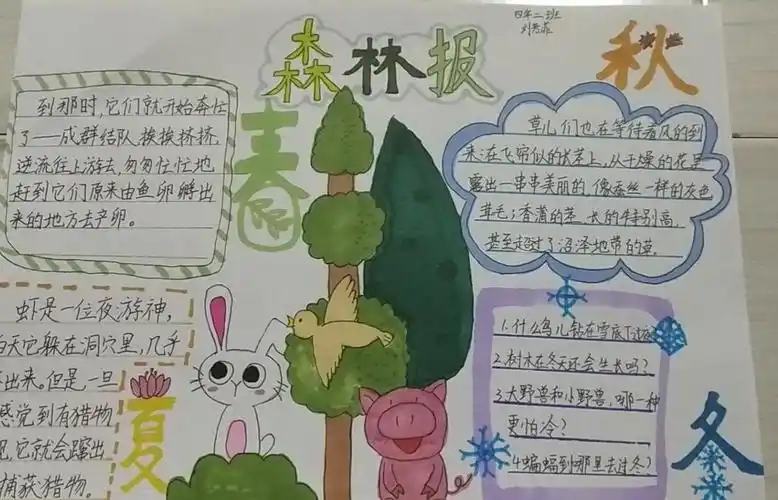 四年二班
森林报
秋
春
到那时,它们就开始奔忙
了——成群结队挨挨挤挤,
逆流往上游去,匆匆忙忙地
赶到它们原来由鱼卵孵出
来的地方去产卵。
草儿们也在等待着风的到
来:在飞帘似的长茎上,从干燥的花果
露出一串串美丽的,像蚕丝一样的灰色
茸毛;香蒲的茎,长的特别高,
甚至超过了沼泽地带的草.
虾是一位夜游神,
白天它躲在洞穴里,几乎
出来。但是一旦
感觉到有猎物
它就会蹿出
捕获猎物。
夏
1.什么鸟儿钻在雪底下过
2.树木在冬天还会生长吗?
3.大野兽和小野兽,哪一种
更怕冷?
4.蝙蝠到那里去过冬?
冬